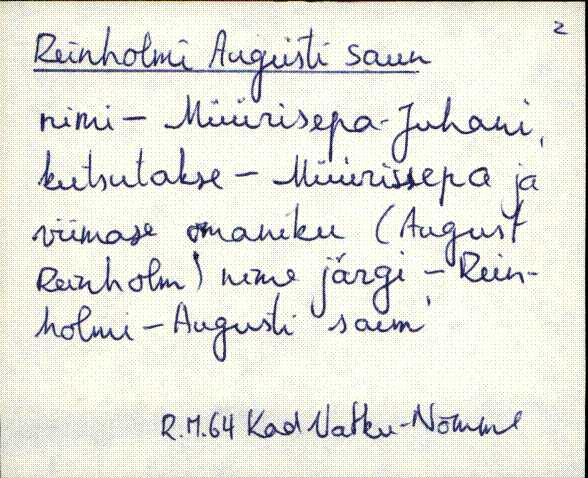 2
Reinholmi Augusti saun
nimi - Müürisepa-Juhani,
kutsutakse - Müürissepa ja
viimase omaniku (August
Reinholm) nime järgi - Rein-
holmi - Augusti saun
R.M.64 Kad Vatku-Nõmme